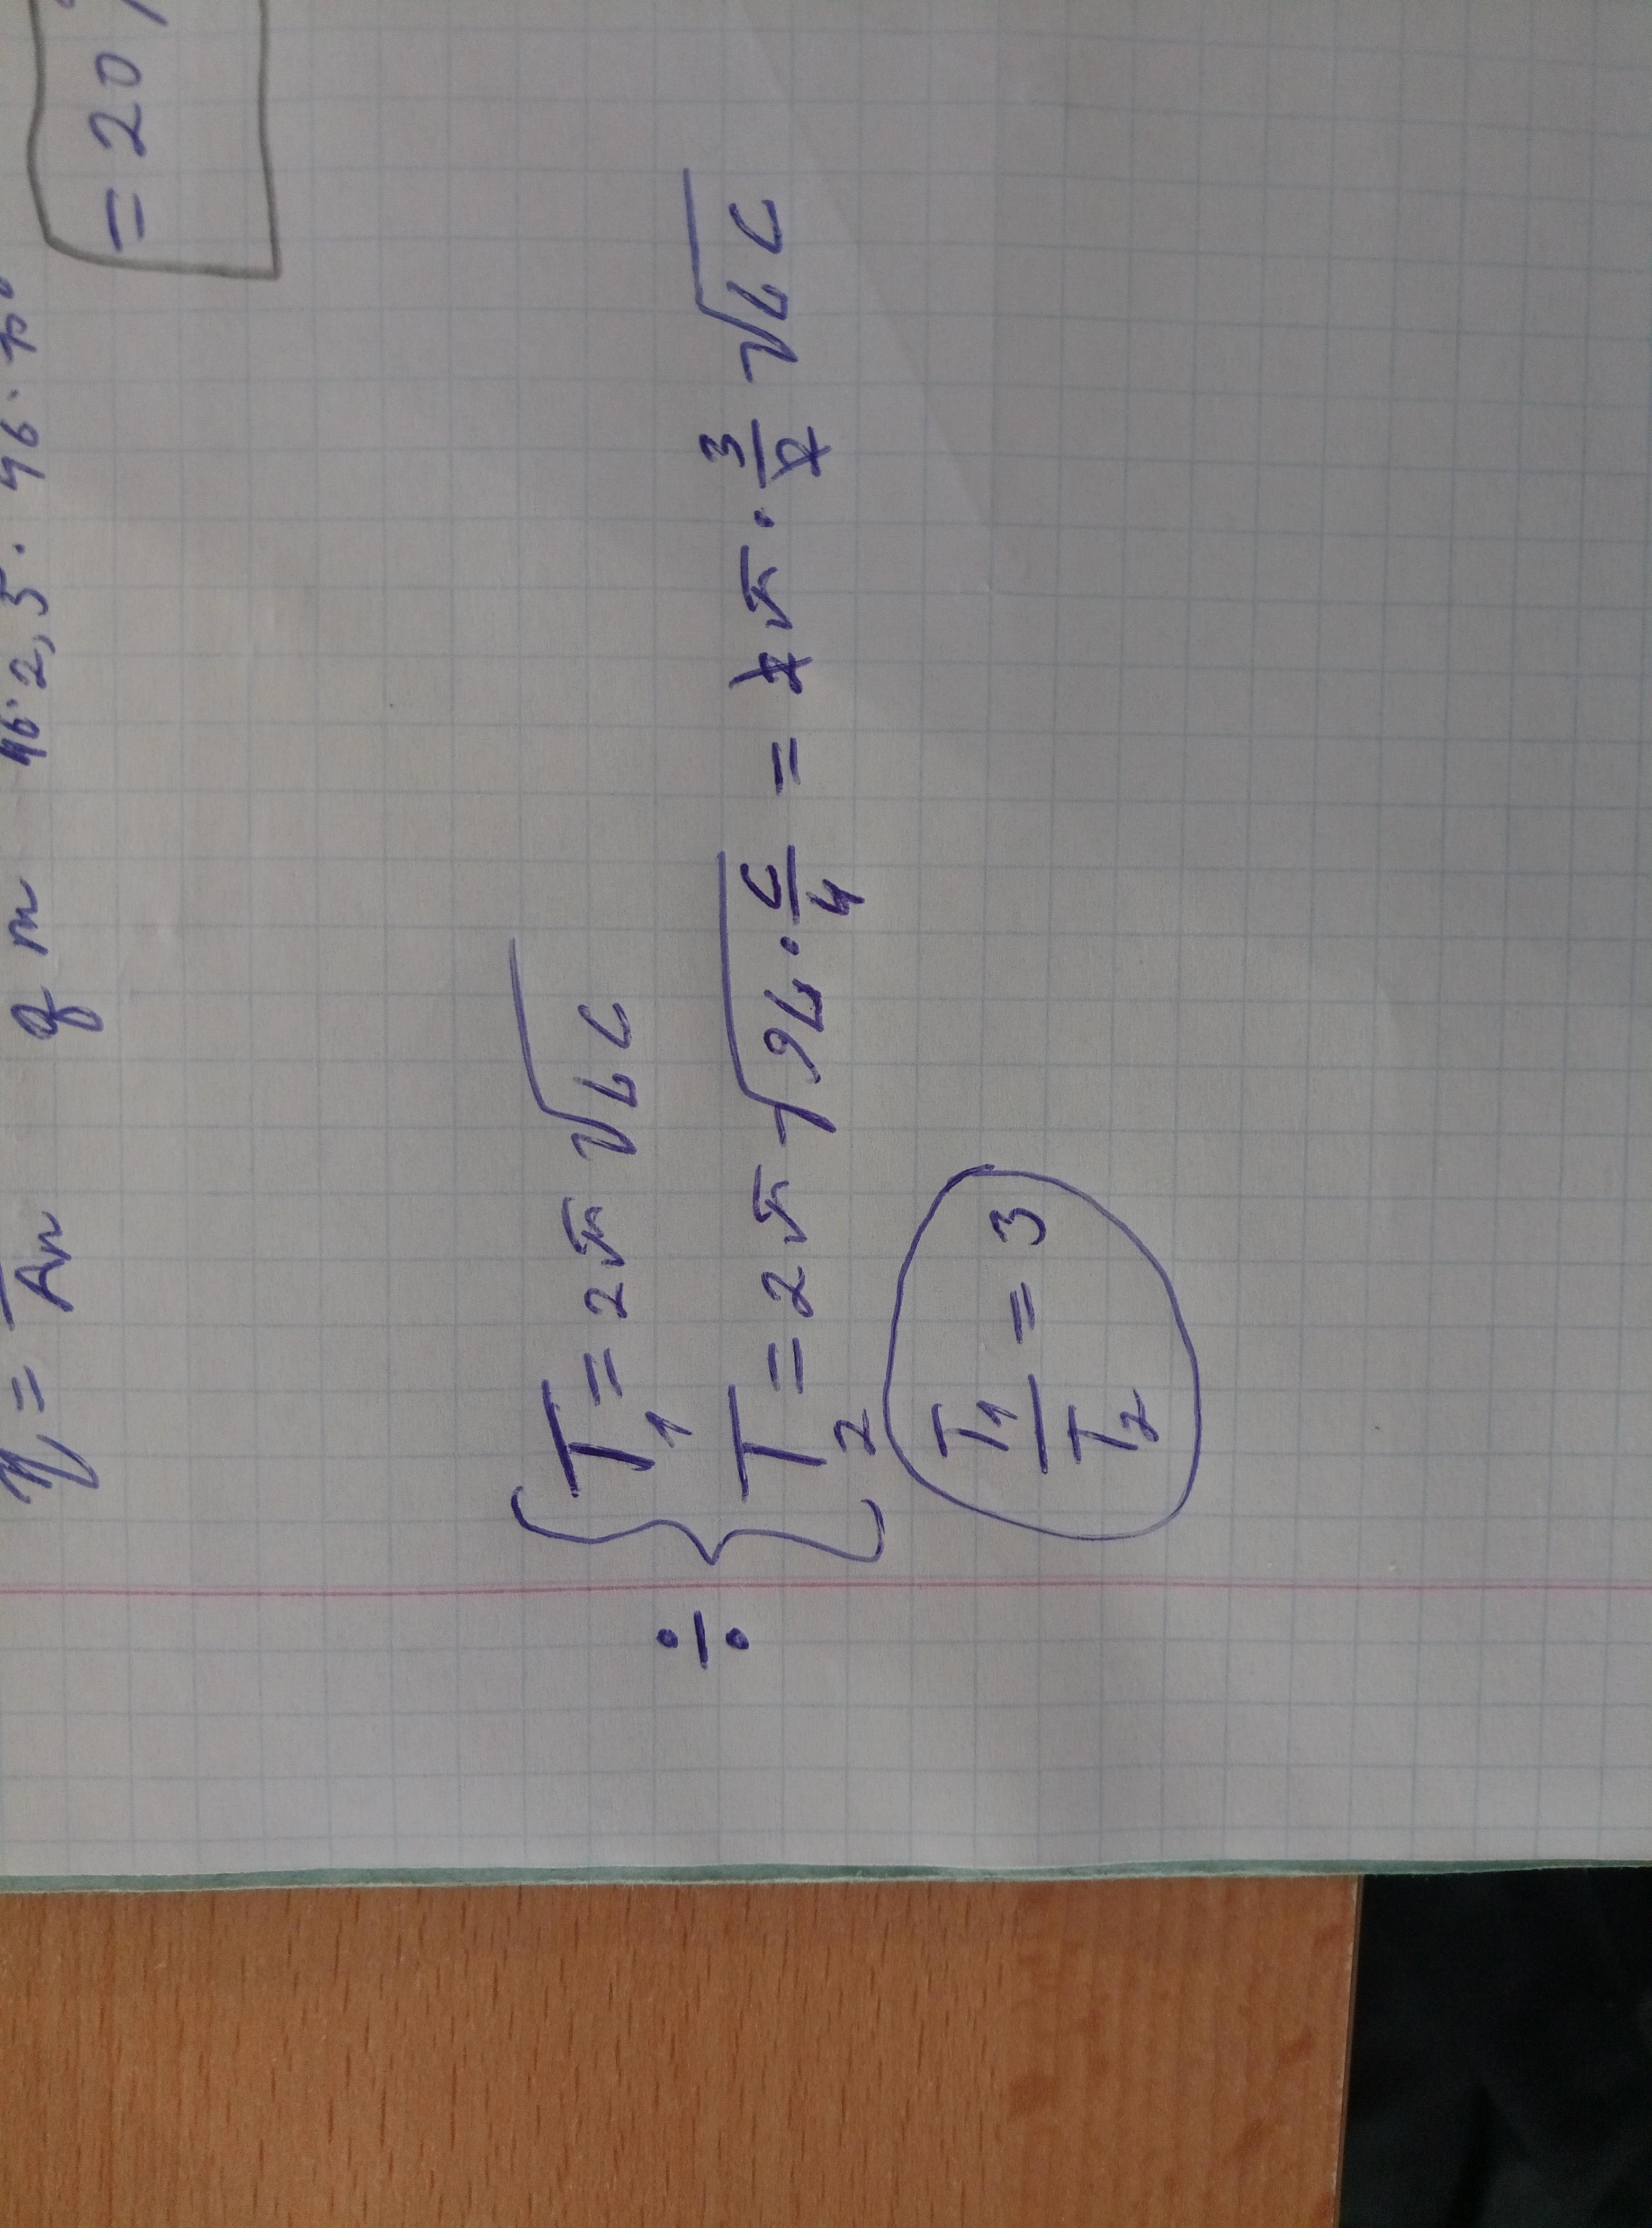 η = Aп q m 46·2,5·46·10
= 20
T₁ = 2π √LC
÷
T₂ = 2π √9L · C/4 = 2π · 3/2 √LC
T₁/T₂ = 3